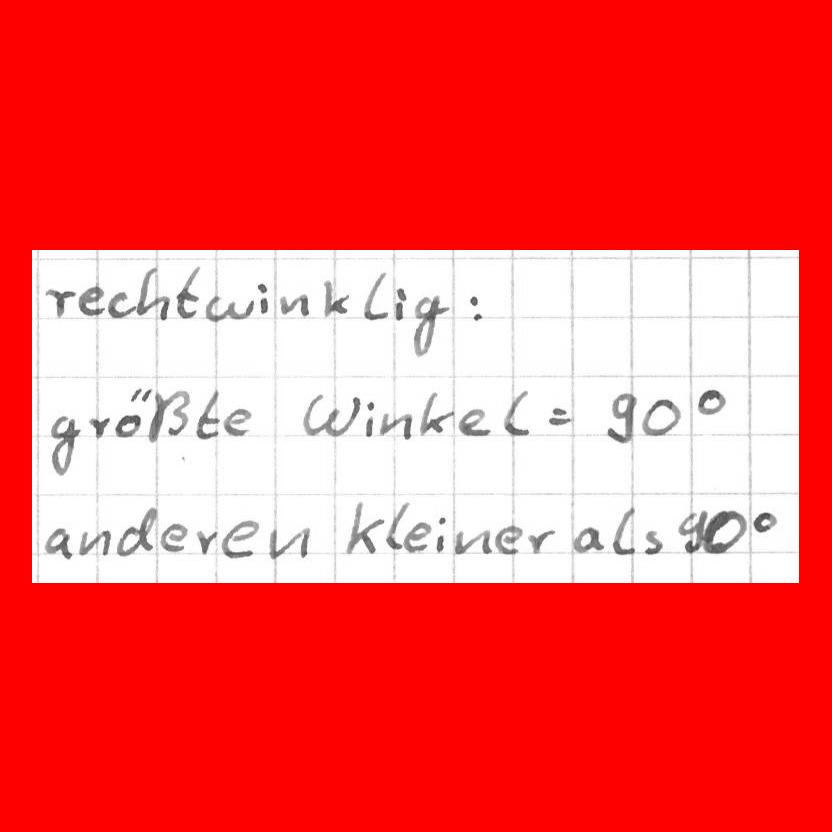 rechtwinklig:
größte Winkel = 90°
anderen kleiner als 90°